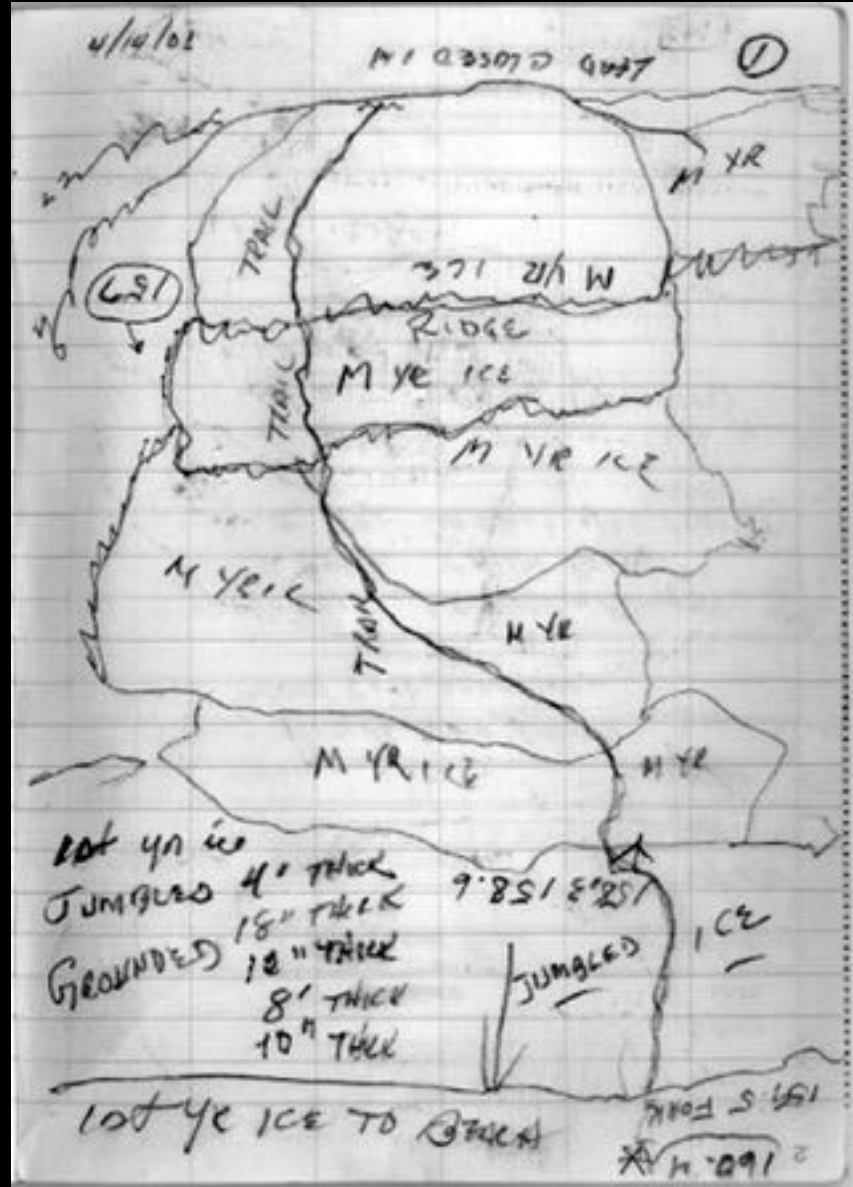 4/14/02
①
LEAD CLOSED IN
M YR
TRAIL
M YR ICE
159
RIDGE
TRAIL
M YR ICE
M YR ICE
M YR IC
M YR
TRAIL
M YR ICE
M YR
1st yr ice
JUMBLED 4" THICK
18" THICK
GROUNDED 12" THICK
8" THICK
10" THICK
158.3 158.6
JUMBLED
ICE
1st YR ICE TO BEACH
159.5 FORK
160.4
2